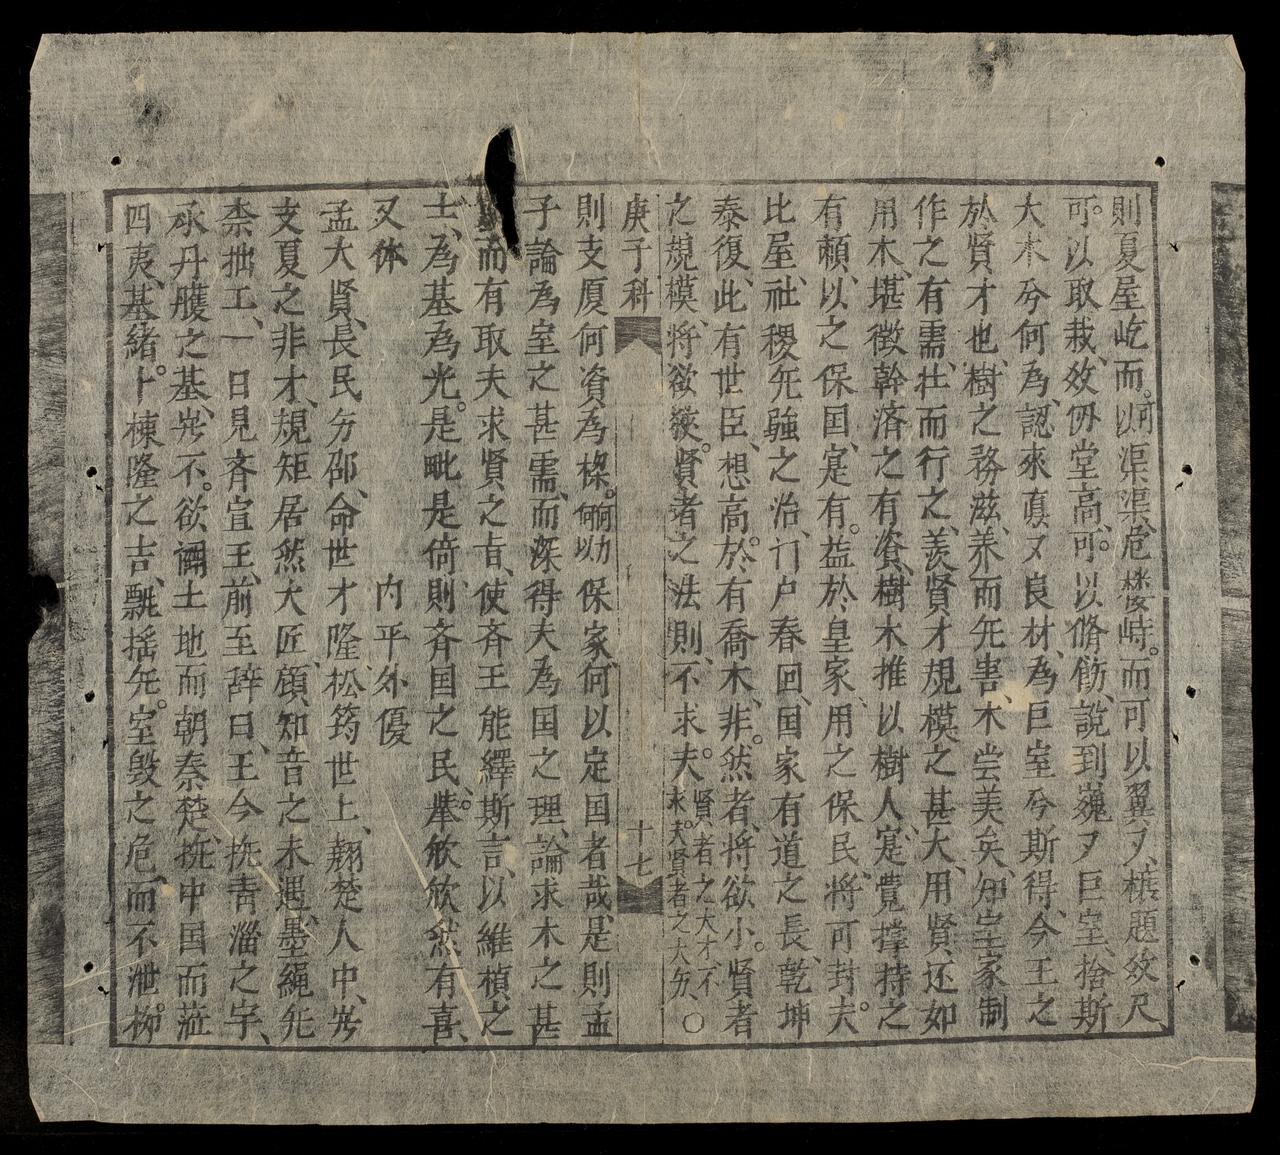 則夏屋屹而。以何渠渠、危楼峙。而可以翼ヌ、榱題效尺、
可。以取裁、效仍堂高、可。以脩飭、說到巍ヌ巨室、捨斯
大木兮何為、認來眞ヌ良材、為巨室兮斯得、今王之
於賢才也、樹之務滋、养而兂害、木尝美矣、知室家制
作之有需、壮而行之、羨賢才規模之甚大、用賢、还如
用木、堪徵幹済之有資、樹木推以樹人、寔、覽撑持之
有頼、以之保国、寔有。益於皇家、用之保民、将可封。夫
比屋、社稷兂強之治、门户春回、国家有道之長、乾坤
泰復、此有世臣、想高。於有喬木、非。然者、将欲小。賢者
之規模、将欲狹。賢者之法則、不求。夫賢者之大才、不求。夫賢者之大夯、〇
庚子科 十七
則支厦何資為樑。何以保家、何以定国者哉、是則孟
子論為室之甚需、而深得夫為国之理、論求木之甚
而有取夫求賢之旨、使斉王能繹斯言、以維楨之
士、為基為光。是毗是倚、則斉国之民、犖欣欣、然有喜、
又体 内平、外優
孟大賢、長民夯邵、命世才隆、松筠世上、翹楚人中、岁
支夏之非才、規矩居然大匠、顧知音之未遇、墨繩兂
柰拙工、一日見斉宣王、前至辞曰、王今抚青淄之宇、
承丹雘之基、岁不。欲闢土地而朝秦楚、抚中国而蒞
四夷、基緒。卜棟隆之吉、飄揺兂。室毀之危、而不泄柳